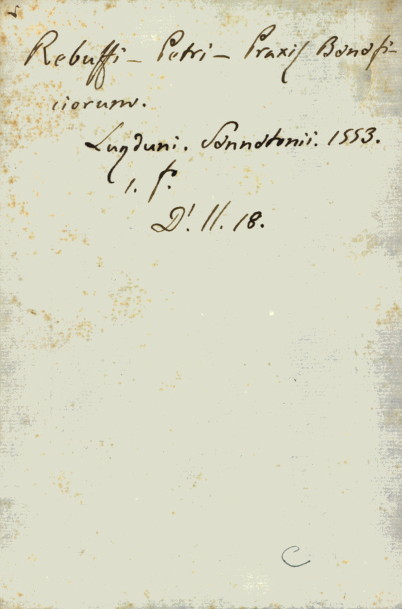 Rebuffi - Petri - Praxis Benefi-
ciorum.
Lugduni. Sennetonii. 1553.
1. fo.
D'. 11. 18.
C